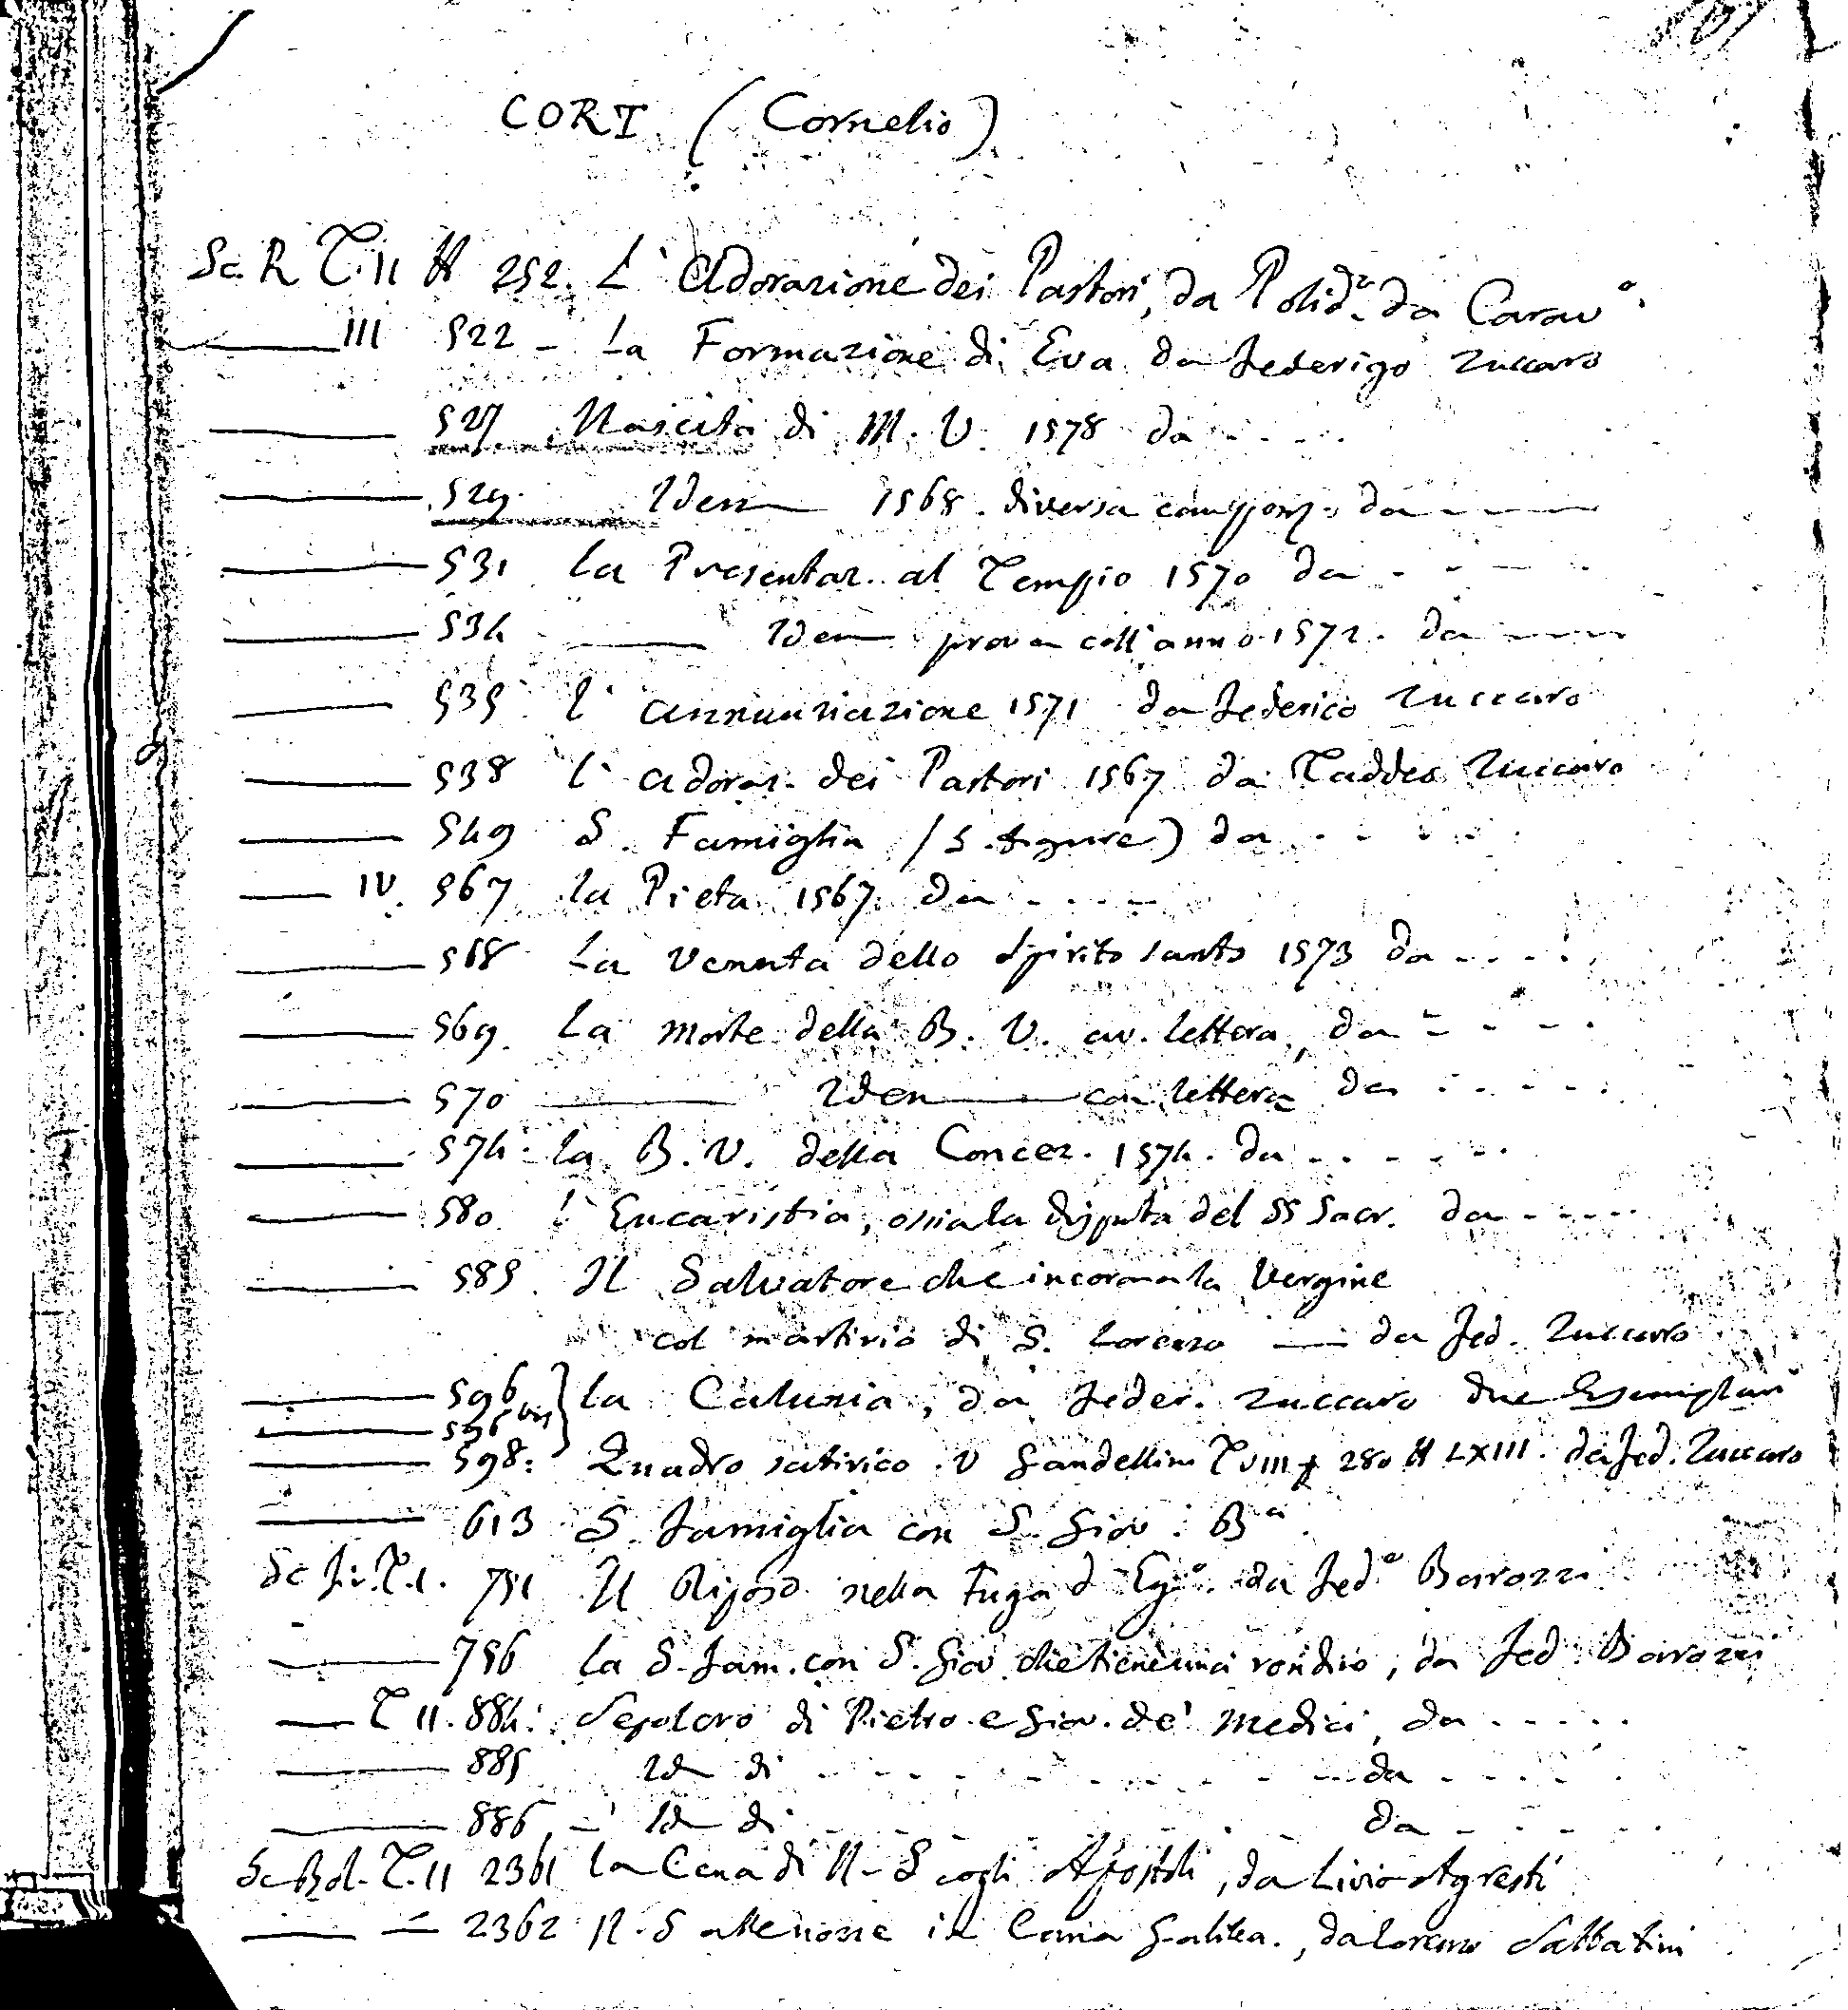 CORT (Cornelio)
Sc. R T. II N 252. L' Adorazione dei Pastori, da Polid.o da Carav.o
III 522 - La Formazione di Eva da Federigo Zuccaro
527 Nascita di M. V. 1578 da - - - -
529. Idem 1568. diversa compoz. da - - - -
531 La Presentaz. al Tempio 1570 da - - - -
534 Idem prova coll'anno 1572. da - - - -
535 l' annunziazione 1571 da Federico Zuccaro
538 l' adoraz. dei Pastori 1567 da Taddeo Zuccaro
549 S. Famiglia (5 figure) da - - - -
IV. 567 la Pieta 1567. da - - - -
568 La venuta dello Spirito Santo 1573 da - - - -
569. La morte della B. V. av. lettera, da - - - -
570 Idem con lettera da - - - -
574. la B. V. della Concez. 1574. da - - - - -
580. l' Eucaristia, ossia la disputa del SS Sacr. da - - - - -
585. Il Salvatore che incorona la Vergine
col martirio di S. Lorenzo — da Fed. Zuccaro
596 } la Calunia, da Feder. Zuccaro due Esemplari
596 bis
598. Quadro satirico. V Gandellini T VIII p 280 N LXIII. da Fed. Zuccaro
613 S. Famiglia con S. Giov. Ba.
Sc. T. I. 751 Il Riposo nella Fuga d' Eg.o da Fed.o Barozzi
756 la S. Fam. con S. Giov. che tiene una rondine, da Fed. Barozzi
T II. 884. Sepolcro di Pietro e Giov. de' Medici, da - - - - -
885 Id di - - - - da - - - -
886 - Id di - - - - da - - - -
Sc Bol. T. II 2361 la Cena di N. S cogli Apostoli, da Livio Agresti
2362 N. S alle nozze in Cana Galilea, da Lorenzo Sabbatini